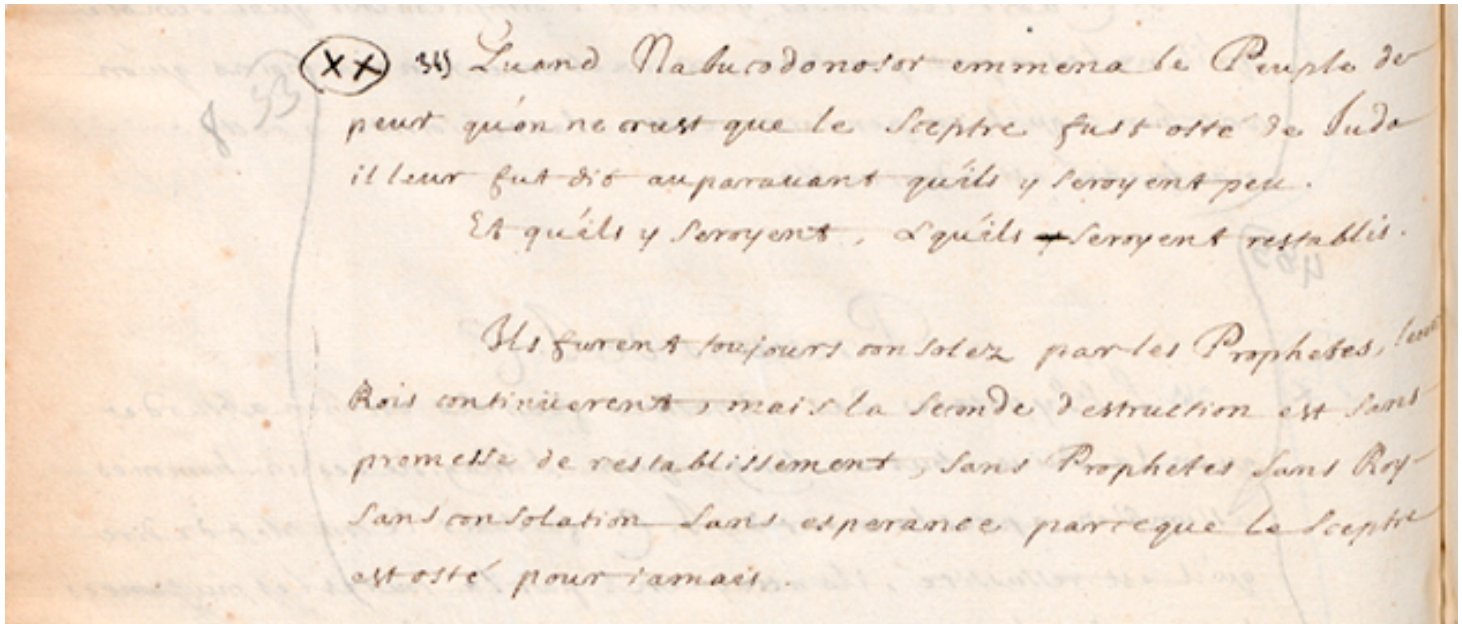 XX 34) Quand Nabucodonosor emmena le Peuple de
peur qu'on ne crust que le Sceptre fust osté de Iuda
il leur fut dit auparauant qu'ils y seroyent peu.
Et qu'ils y seroyent, & qu'ils seroyent restablis.
Ils furent toujours consolez par les Prophetes, leurs
Rois continüerent, mais la seconde destruction est sans
promesse de restablissement, sans Prophetes sans Roy
sans consolation sans esperance parceque le sceptre
est osté pour iamais.